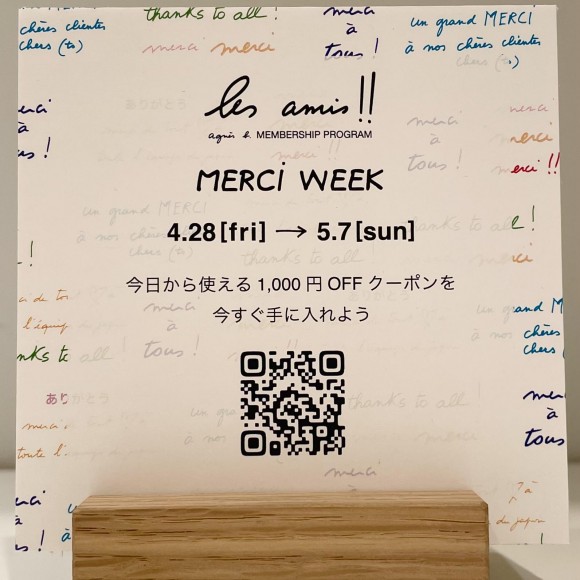 thanks to all !
chères clientes
chers (ts)
merci merci
merci
à
tous !
un grand MERCI
à nos chères clientes
chers (ts)
les amis!!
agnès b. MEMBERSHIP PROGRAM
MERCI WEEK
4.28[fri] → 5.7[sun]
今日から使える 1,000 円 OFF クーポンを
今すぐ手に入れよう
ありがとう
un grand MERCI
à nos chères clientes
chers (ts)
thanks to all !
merci
à
tous !
merci
à
tous !
merci
merci
merci !!
ありがとう
thanks to all !
merci
à
tous